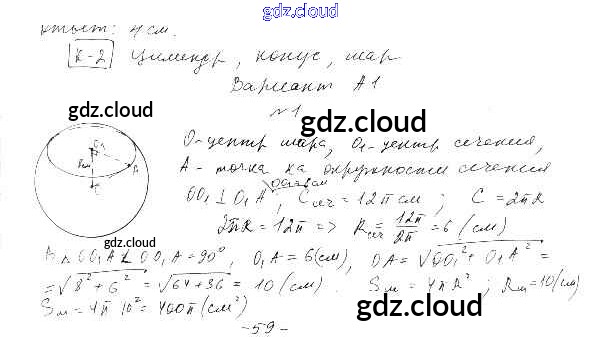 gdz.cloud
ответ: 4 см.
К-2 Цилиндр, конус, шар
gdz.cloud
Вариант А1
№1
gdz.cloud
О-центр шара, О₁-центр сечения,
А - точка на окружности сечения
OO₁ ⊥ O₁A, Cсеч = 12π см; C = 2πR
gdz.cloud
2πR = 12π => Rсеч = 12π/2π = 6 (см)
gdz.cloud
В △ OO₁A ∠OO₁A = 90°, O₁A = 6(см), OA = √OO₁² + O₁A² =
= √8² + 6² = √64 + 36 = 10 (см). Sш = 4πR²; Rш = 10(см)
Sш = 4π 10² = 400π (см²)
gdz.cloud
gdz.cloud
-59-